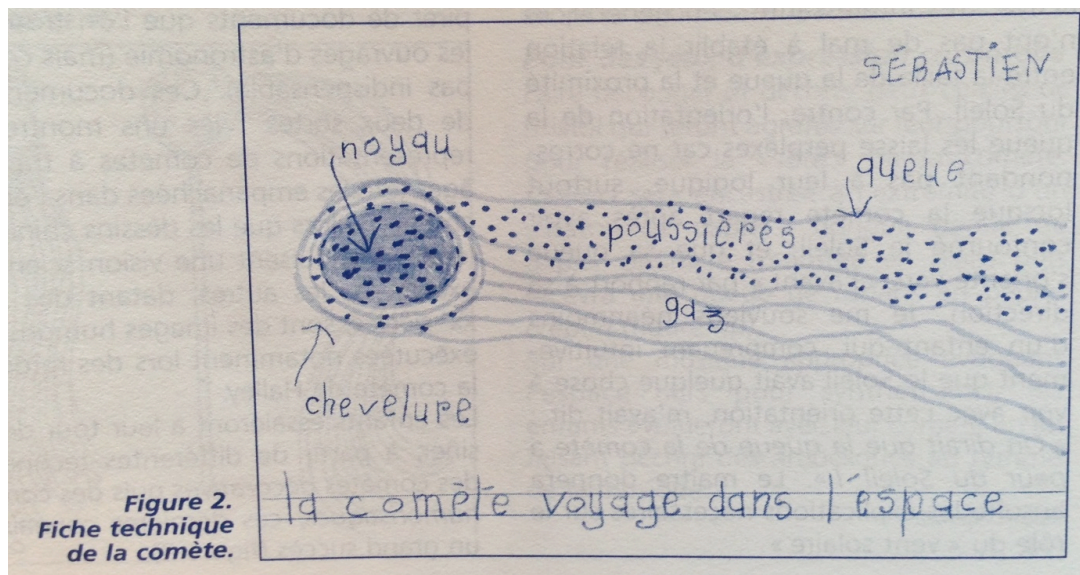 SÉBASTIEN
noyau
queue
poussières
gaz
chevelure
la comète voyage dans l'espace
Figure 2.
Fiche technique
de la comète.